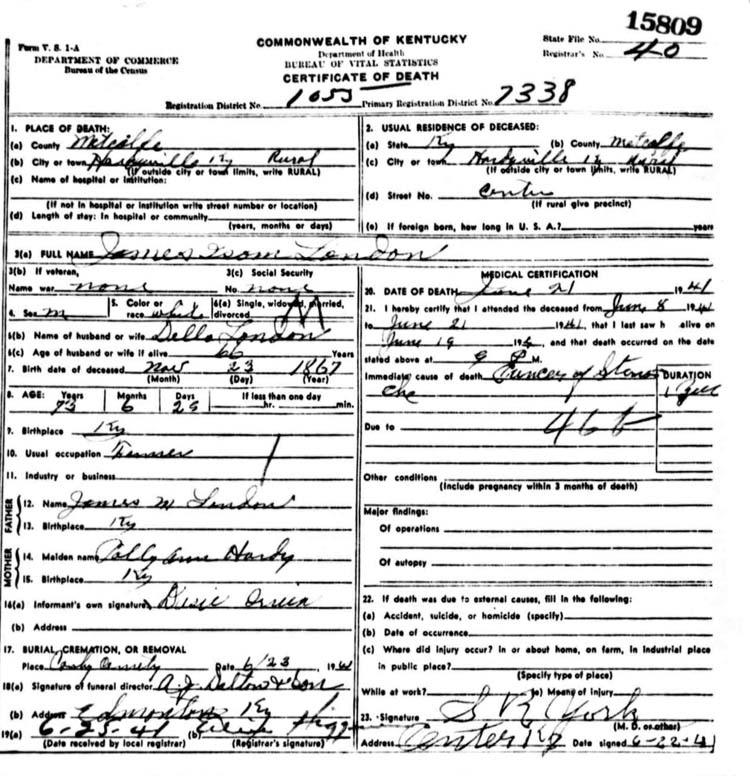 15809
Form V. S. 1-A
DEPARTMENT OF COMMERCE
Bureau of the Census
COMMONWEALTH OF KENTUCKY
Department of Health
BUREAU OF VITAL STATISTICS
CERTIFICATE OF DEATH
State File No.
Registrar's No. 40
Registration District No. 1055 Primary Registration District No. 7338
1. PLACE OF DEATH:
(a) County Metcalfe
(b) City or town Hardyville Ky Rural
(If outside city or town limits, write RURAL)
(c) Name of hospital or institution:
(If not in hospital or institution write street number or location)
(d) Length of stay: In hospital or community
(years, months or days)
2. USUAL RESIDENCE OF DECEASED:
(a) State Ky (b) County Metcalfe
(c) City or town Hardyville Ky Rural
(If outside city or town limits, write RURAL)
(d) Street No. Center
(If rural give precinct)
(e) If foreign born, how long in U. S. A.? years
3(a) FULL NAME James Isom London
3(b) If veteran, 3(c) Social Security
Name war none No. none
4. Sex M 5. Color or race white 6(a) Single, widowed, married, divorced M
6(b) Name of husband or wife Della London
6(c) Age of husband or wife if alive 66 Years
7. Birth date of deceased Nov 23 1867
(Month) (Day) (Year)
8. AGE: Years Months Days If less than one day
73 6 28 hr. min.
9. Birthplace Ky
10. Usual occupation Farmer
11. Industry or business
FATHER
12. Name James M London
13. Birthplace Ky
MOTHER
14. Maiden name Polly Ann Hardy
15. Birthplace Ky
16(a) Informant's own signature
(b) Address
17. BURIAL, CREMATION, OR REMOVAL
Place Date 6/23, 1941
18(a) Signature of funeral director A. J. Dalton & Son
(b) Address Edmonton Ky
19(a) 6-25-41 (b)
(Date received by local registrar) (Registrar's signature)
MEDICAL CERTIFICATION
20. DATE OF DEATH June 21 1941
21. I hereby certify that I attended the deceased from June 8 1941
to June 21 1941, that I last saw h alive on
June 19 194, and that death occurred on the date
stated above at 9 P M.
Immediate cause of death Cancer of Stoma
che
DURATION
1 year
Due to 46b
Other conditions
(Include pregnancy within 3 months of death)
Major findings:
Of operations
Of autopsy
22. If death was due to external causes, fill in the following:
(a) Accident, suicide, or homicide (specify)
(b) Date of occurrence
(c) Where did injury occur? In or about home, on farm, in industrial place
in public place?
(Specify type of place)
While at work? (e) Means of injury
23. Signature S R York
(M. D. or other)
Address Center Ky Date signed 6-22-41